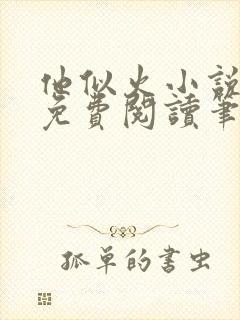 他似火小說
免費閱讀筆
孤單的書虫